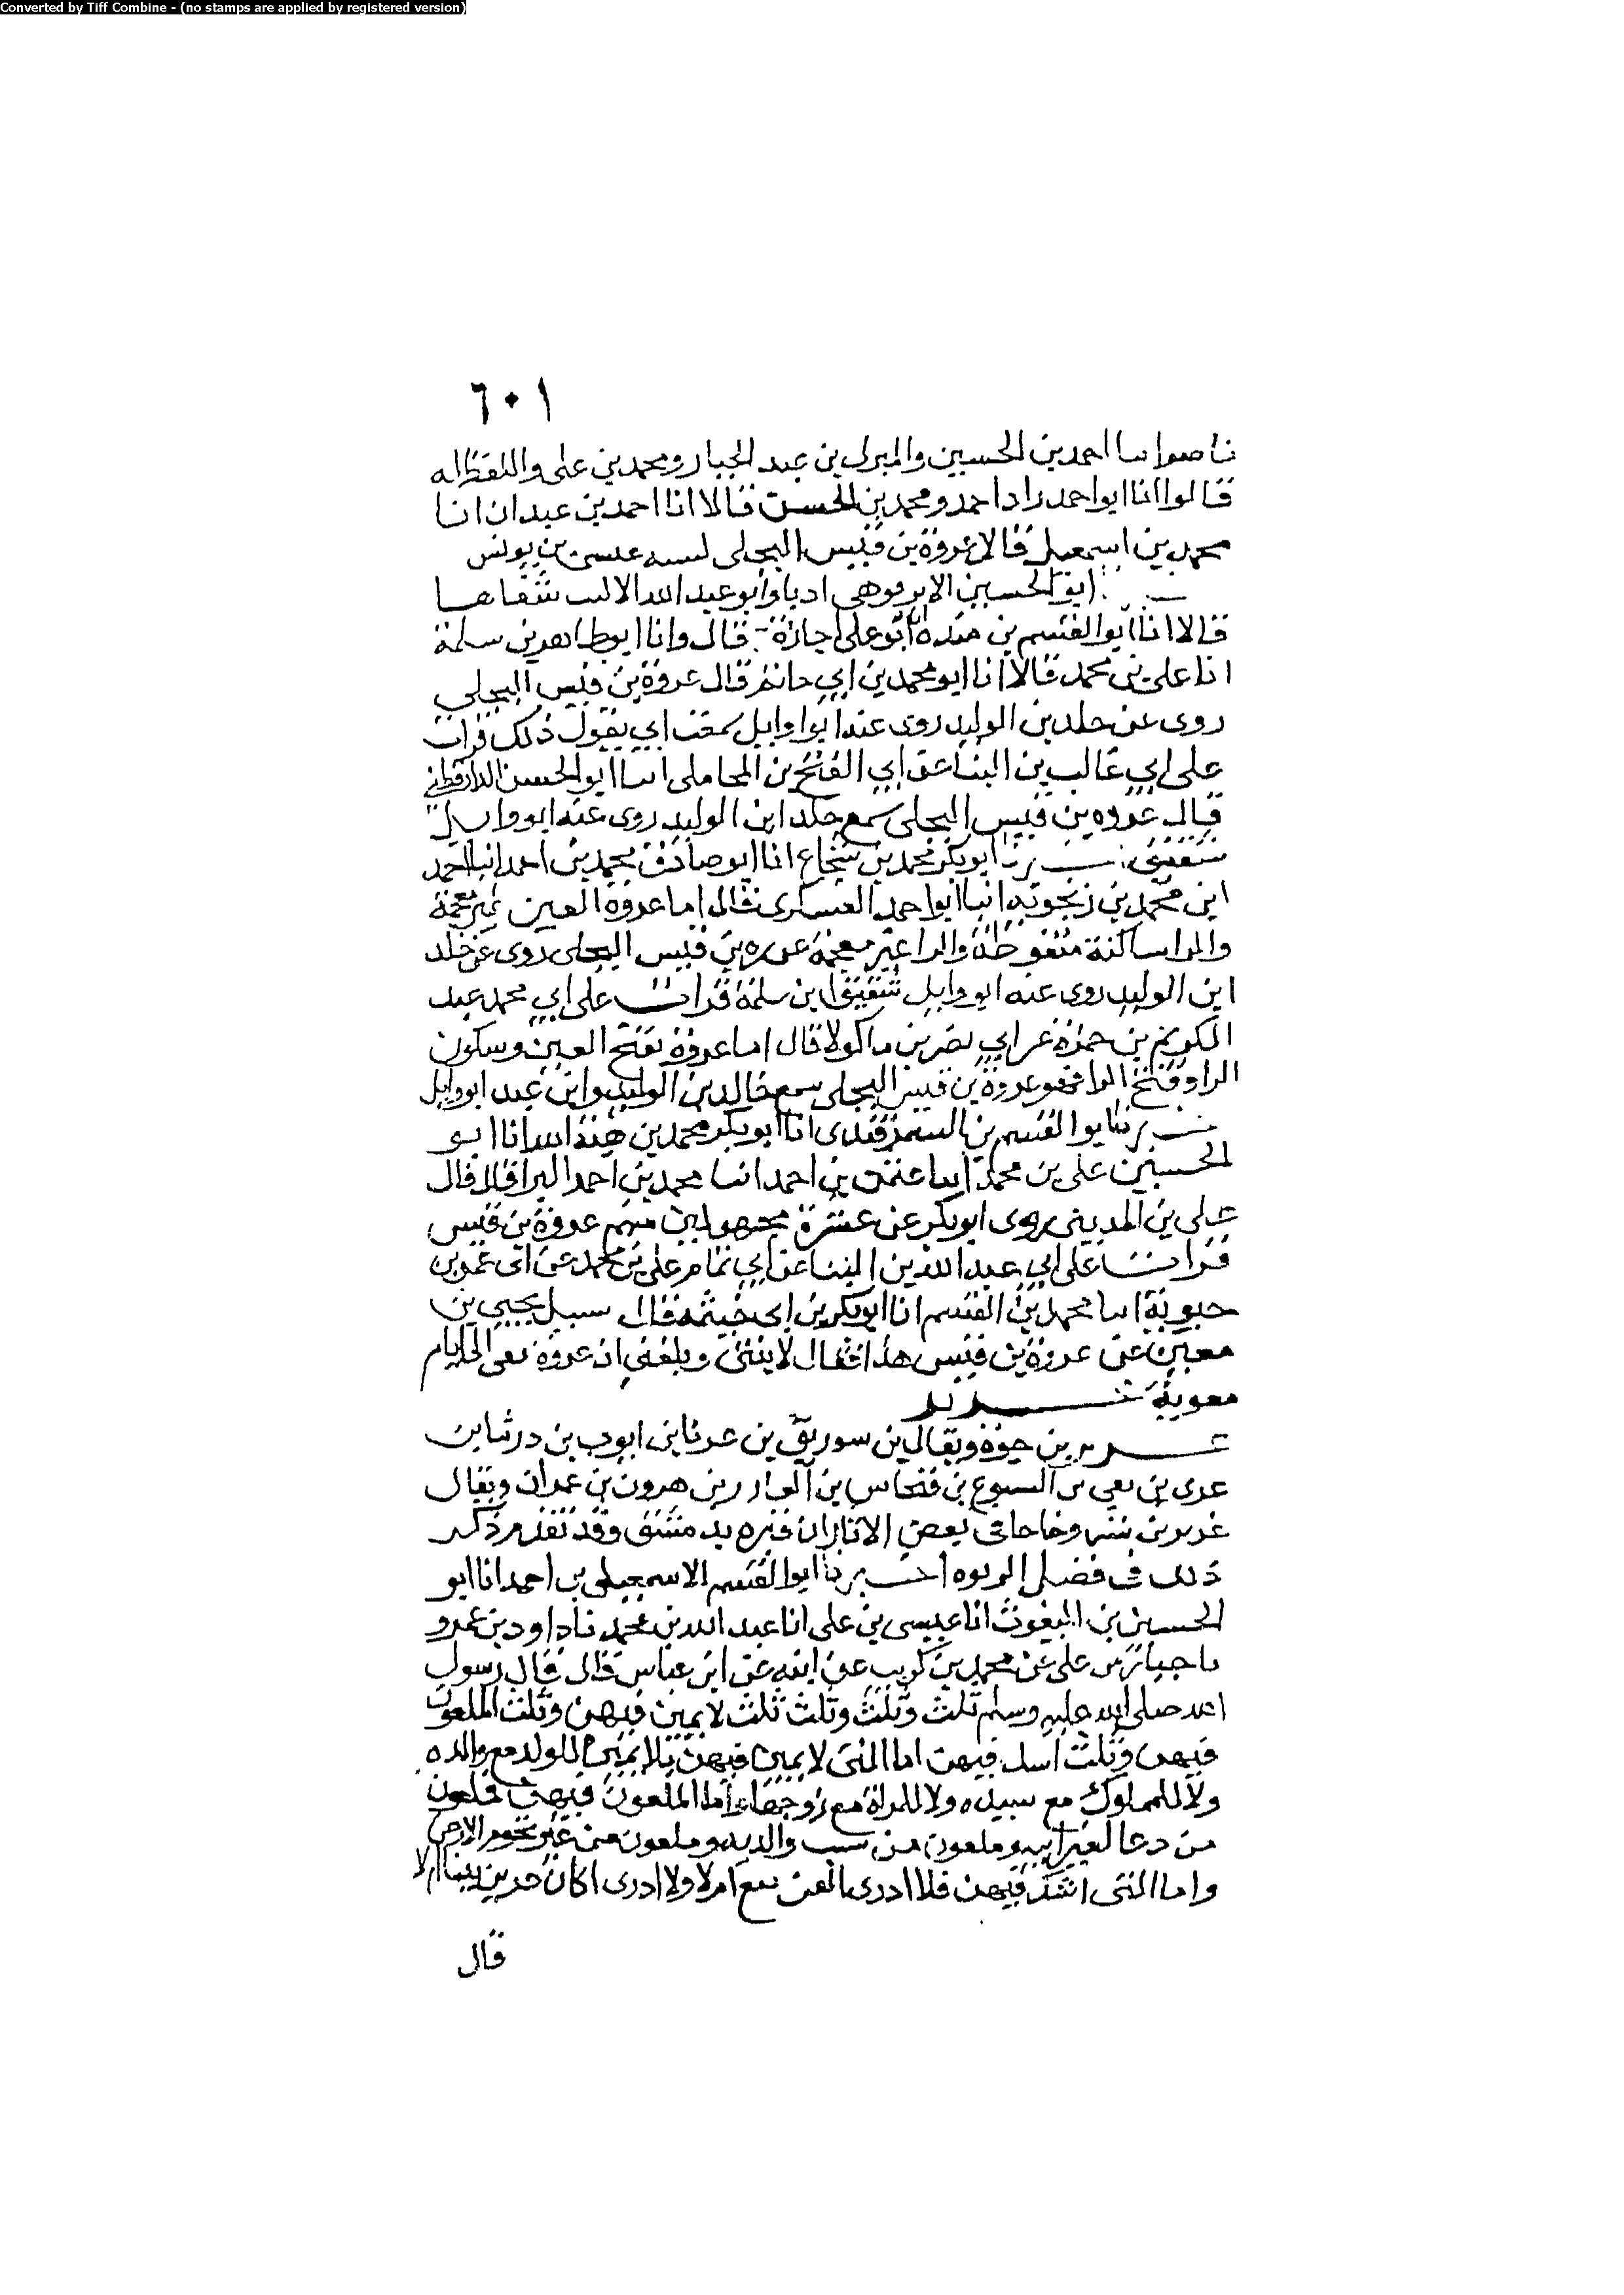 Converted by Tiff Combine - (no stamps are applied by registered version)
٦٠١
احمد بن الحسين والمبرك بن عبد الجبار ومحمد بن على واللفظ له
قالوا انا ابو احمد زاد احمد ومحمد بن الحسن قالا انا احمد بن عبدان انا
محمد بن اسمعيل قال عزرة بن قيس البجلى عيسى بن يونس
ابو الحسين وابو عبد الله شفاها
قالا انا ابو القسم بن منده انا ابو على اجازة قال وانا ابو طاهر بن سلمة
انا على بن محمد قالا انا ابو محمد بن ابي حاتم قال عزرة بن قيس البجلي
روى عن خلد بن الوليد روى عنه ابو وايل سمعت ابي يقول ذلك قرات
على ابي غالب بن البنا عن ابي الفتح بن المحاملى انا ابو الحسن الدارقطني
قال عزره بن قيس البجلى سمع خلد ابن الوليد روى عنه ابو وايل
شقيق ابو بكر محمد بن شجاع انا ابو صادق محمد بن احمد انبا احمد
ابن محمد بن زنجويه انبا ابو احمد العسكرى قال اما عزرة العين غير معجمة
والزا ساكنة منقوطة والرا غير معجمة عزره بن قيس البجلى روى عن خلد
ابن الوليد روى عنه ابو وايل شقيق ابن سلمة قرات على ابي محمد عبد
الكريم بن حمزة عن ابي نصر بن ماكولا قال اما عزرة بفتح العين وسكون
الزا وفتح الرا فهو عزرة بن قيس البجلى سمع خالد بن الوليد ابو وايل
ابو القسم بن السمرقندى انا ابو بكر محمد بن هبة الله انا ابو
الحسين على بن محمد انبا عثمن بن احمد انبا محمد بن احمد البرا قال قال
على بن المديني روى ابو بكر عن عشرة مجهولين منهم عزرة بن قيس
قرات على ابي عبد الله بن البنا عن ابي تمام على بن محمد عن ابى عمر بن
حيوية انا محمد بن القسم انا ابو بكر بن ابى خيثمة قال سيل يحيي بن
معين عن عزرة بن قيس هذا فقال لا شى وبلغني ان عزرة بقى الى ايام
معوية
عزير بن جروة ويقال بن سوريق بن عرنا بن ايوب بن درثنا بن
عرى بن بقى بن السبوع بن فنحاس بن العازر بن هرون بن عمران ويقال
عزير بن سروخا جا فى بعض الاثار ان قبره بدمشق وقد تقدم ذكر
ذلك فى فضل الربوه اخبرنا ابو القسم الاسمعيلى بن احمد انا ابو
الحسين بن النقور انا عيسى بن على انا عبد الله بن محمد نا داود بن عمرو
نا حبان بن على عن محمد بن كريب عن ابيه عن ابن عباس قال قال رسول
الله صلى الله عليه وسلم ثلث وثلث وثلث ثلث لا يمين فيهن وثلث الملعون
فيهن وثلث اشك فيهن اما التى لا يمين فيهن فلا يمين للولد مع والده
ولا للمملوك مع سيده ولا للمراة مع زوجها واما الملعون فيهن فملعون
من دعا لغير ابيه وملعون من سب والديه وملعون من غير تخوم الارض
واما التى اشك فيهن فلا ادرى العن تبع ام لا ولا ادرى اكان عزير نبيا ام لا
قال